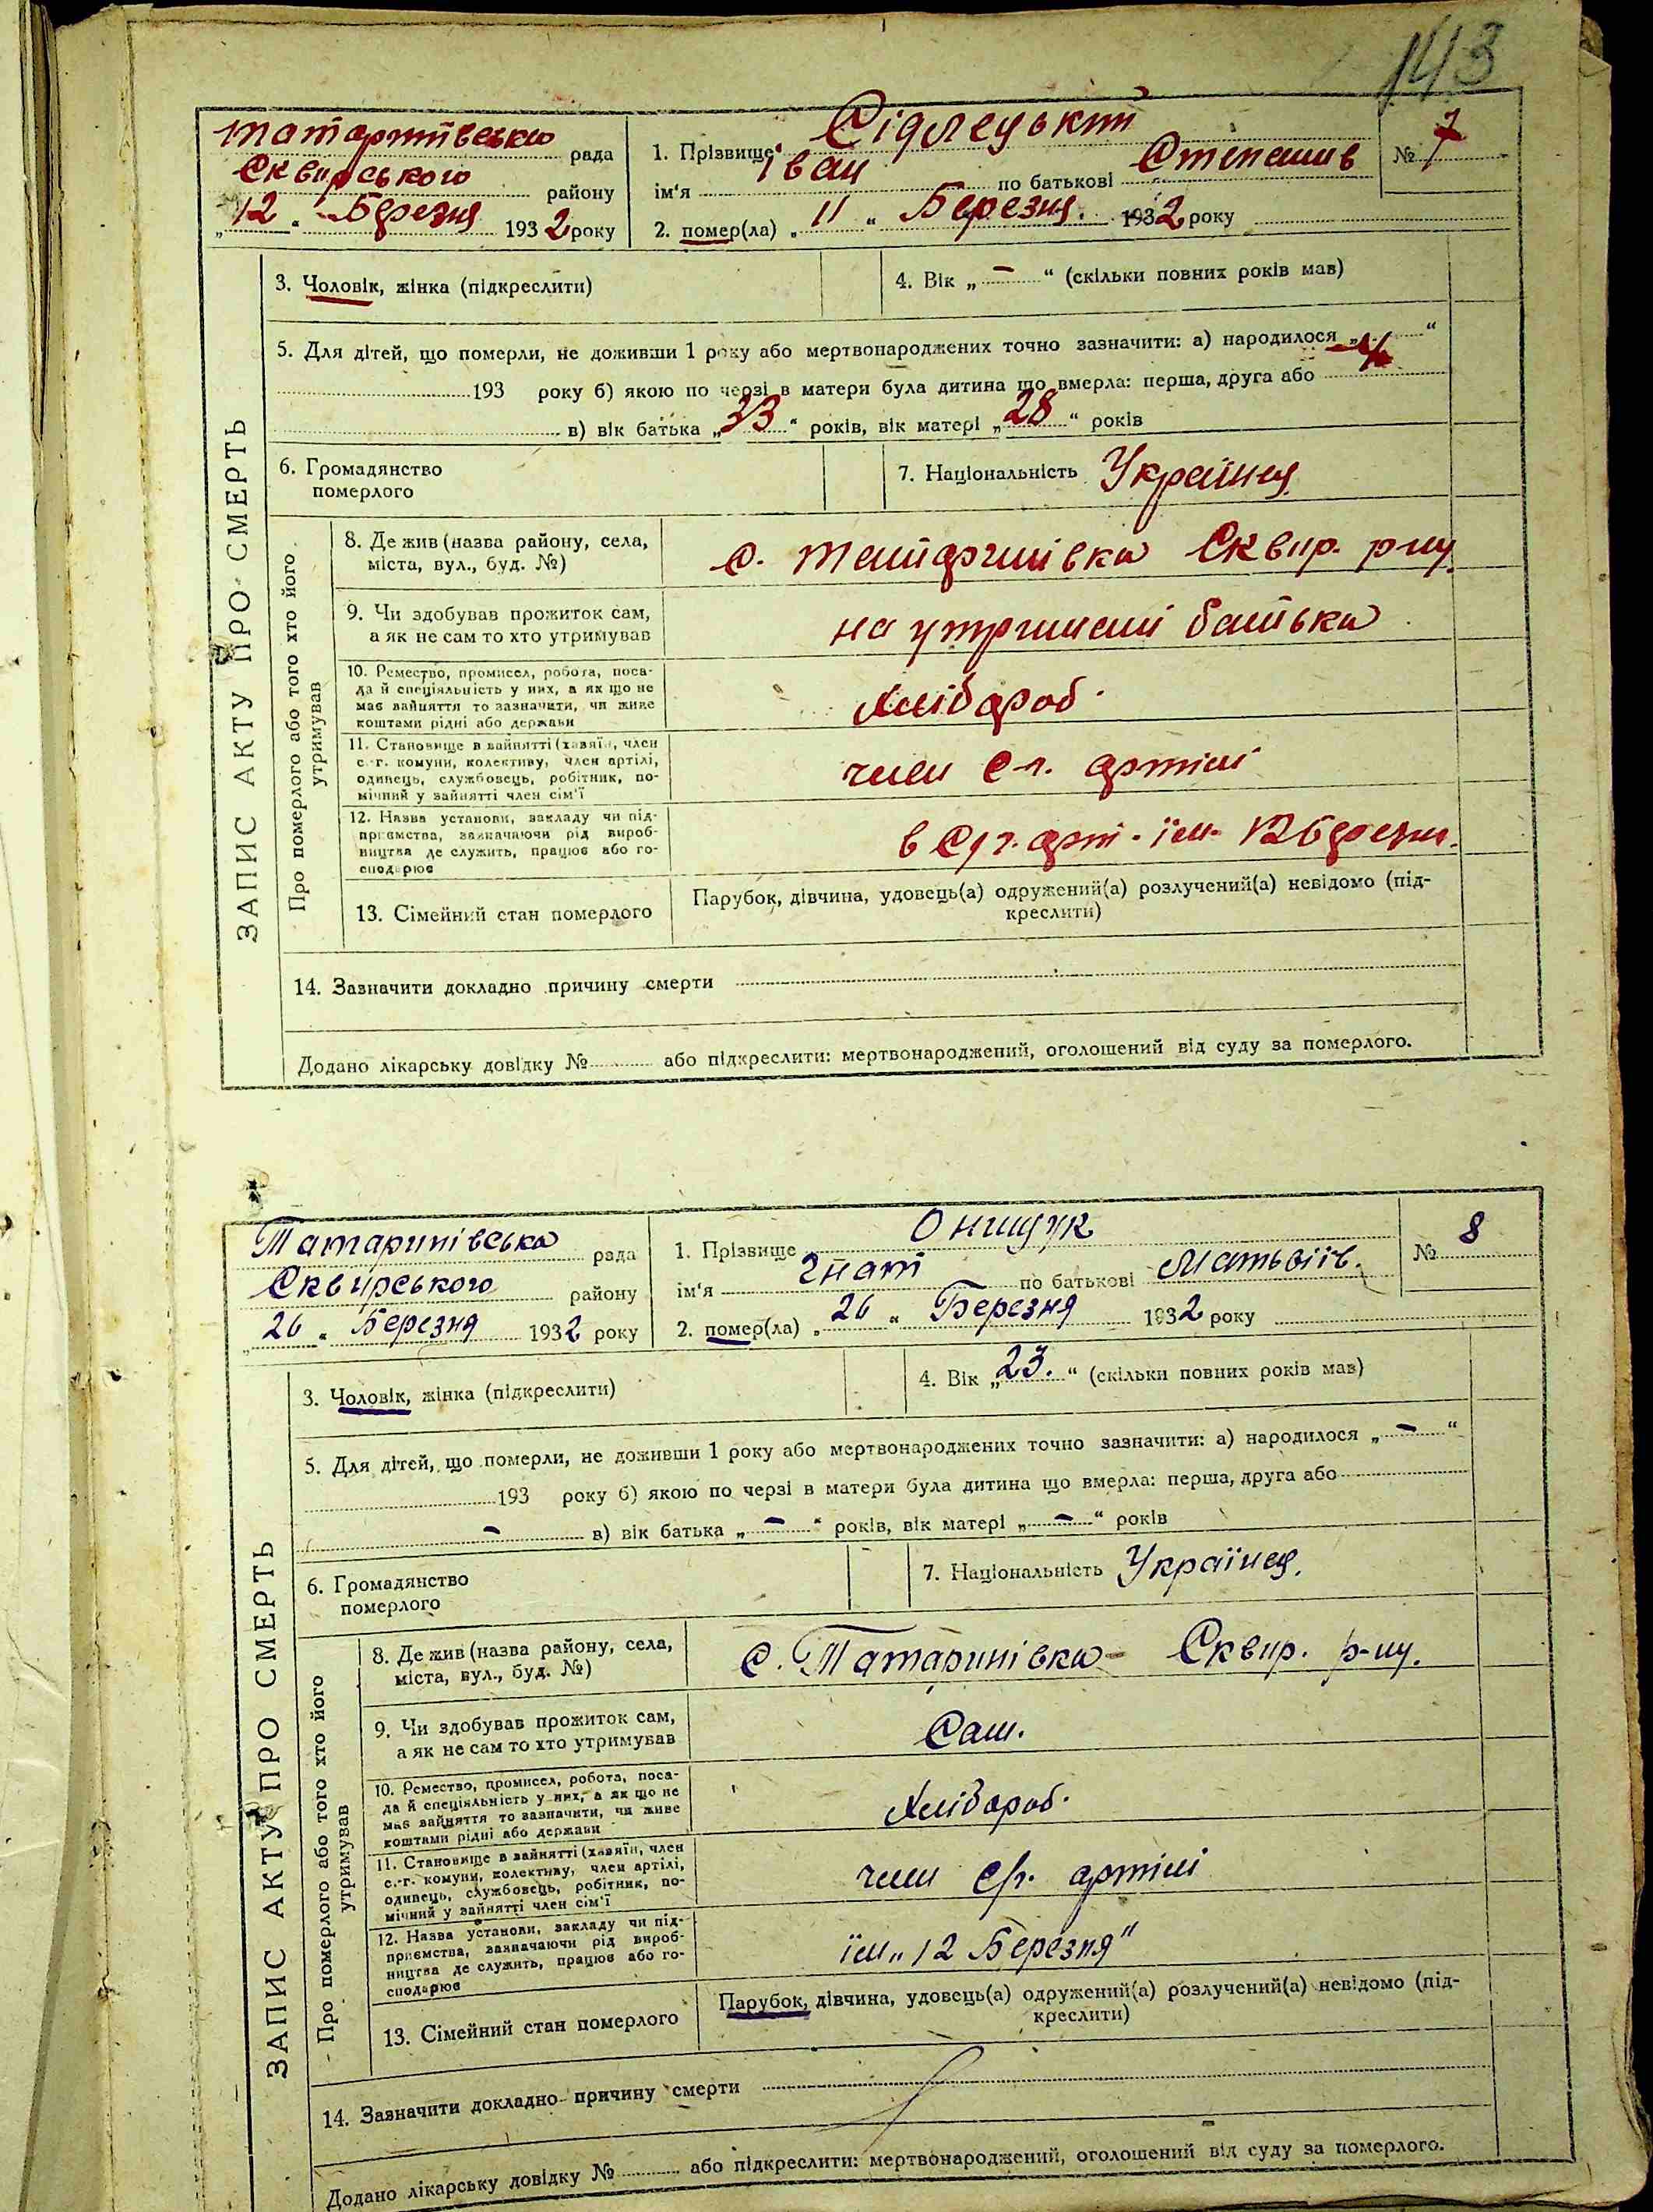 143
Татаринівська рада
Сквирського району
„12“ Березня 1932 року
1. Прізвище Сідлецький
ім‘я Іван по батькові Степанів
№ 7
2. помер(ла) „11“ Березня. 1932 року
ЗАПИС АКТУ ПРО СМЕРТЬ
3. Чоловік, жінка (підкреслити)
4. Вік „–“ (скільки повних років мав)
5. Для дітей, що померли, не доживши 1 року або мертвонароджених точно зазначити: а) народилося „ “
193 року б) якою по черзі в матери була дитина що вмерла: перша, друга або 4
в) вік батька „33“ років, вік матері „28“ років
6. Громадянство
померлого
7. Національність Українец
Про померлого або того хто його
утримував
8. Де жив (назва району, села,
міста, вул., буд. №)
с. Татаринівка Сквир. р-ну.
9. Чи здобував прожиток сам,
а як не сам то хто утримував
на утриманні батька
10. Ремество, промисел, робота, поса-
да й спеціяльність у них, а як що не
має зайняття то зазначити, чи живе
коштами рідні або держави
Хлібороб.
11. Становище в зайнятті (хазяїн, член
с.-г. комуни, колективу, член артілі,
одинець, службовець, робітник, по-
мічний у зайнятті член сім‘ї
член с.г. артілі
12. Назва установи, закладу чи під-
приємства, зазначаючи рід вироб-
ництва де служить, працює або го-
сподарює
в с/г. арт. їм. 12 березн.
13. Сімейний стан померлого
Парубок, дівчина, удовець(а) одружений(а) розлучений(а) невідомо (під-
креслити)
14. Зазначити докладно причину смерти
Додано лікарську довідку № або підкреслити: мертвонароджений, оголошений від суду за померлого.
Татаринівська рада
Сквирського району
„26“ Березня 1932 року
1. Прізвище Онищук
ім‘я Гнат по батькові Матьвіїв.
№ 8
2. помер(ла) „26“ Березня 1932 року
ЗАПИС АКТУ ПРО СМЕРТЬ
3. Чоловік, жінка (підкреслити)
4. Вік „23.“ (скільки повних років мав)
5. Для дітей, що померли, не доживши 1 року або мертвонароджених точно зазначити: а) народилося „–“
193 року б) якою по черзі в матери була дитина що вмерла: перша, друга або
– в) вік батька „–“ років, вік матері „–“ років
6. Громадянство
померлого
7. Національність Українец.
Про померлого або того хто його
утримував
8. Де жив (назва району, села,
міста, вул., буд. №)
с. Татаринівка Сквир. р-ну.
9. Чи здобував прожиток сам,
а як не сам то хто утримував
Сам.
10. Ремество, промисел, робота, поса-
да й спеціяльність у них, а як що не
має зайняття то зазначити, чи живе
коштами рідні або держави
Хлібороб.
11. Становище в зайнятті (хазяїн, член
с.-г. комуни, колективу, член артілі,
одинець, службовець, робітник, по-
мічний у зайнятті член сім‘ї
член с/г. артілі
12. Назва установи, закладу чи під-
приємства, зазначаючи рід вироб-
ництва де служить, працює або го-
сподарює
їм „12 Березня“
13. Сімейний стан померлого
Парубок, дівчина, удовець(а) одружений(а) розлучений(а) невідомо (під-
креслити)
14. Зазначити докладно причину смерти
Додано лікарську довідку № або підкреслити: мертвонароджений, оголошений від суду за померлого.